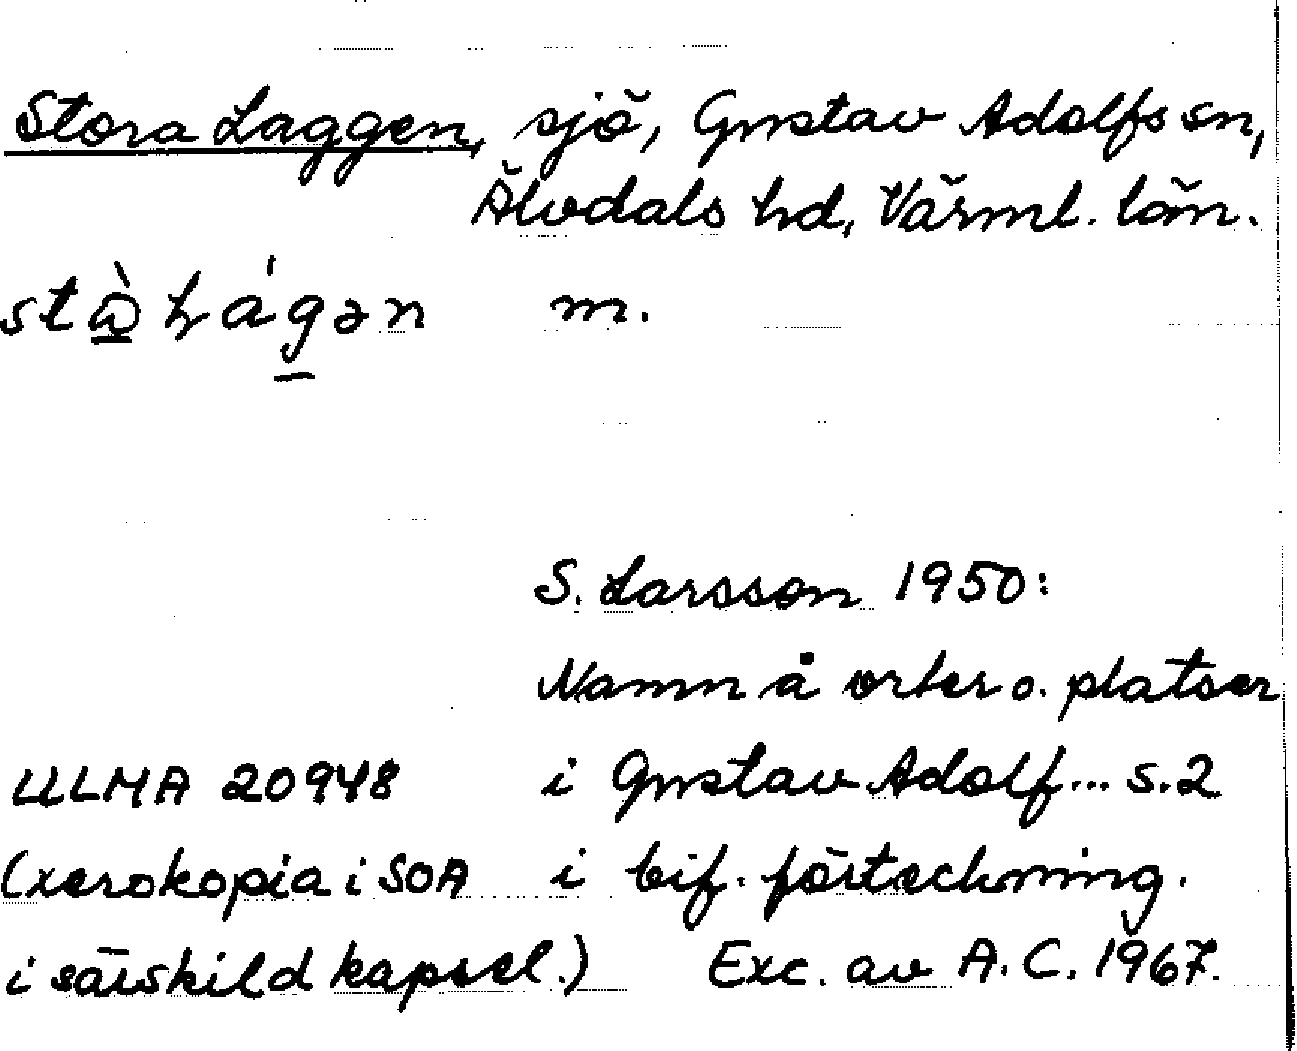 Stora Laggen, sjö, Gustav Adolfs sn,
Älvdals hd, Värml. län.
m.
S. Larsson 1950:
Namn å orter o. platser
ULMA 20948 i Gustav Adolf... s.2
(xerokopia i SOA i bif. förteckning.
i särskild kapsel.) Exc. av A.C. 1967.